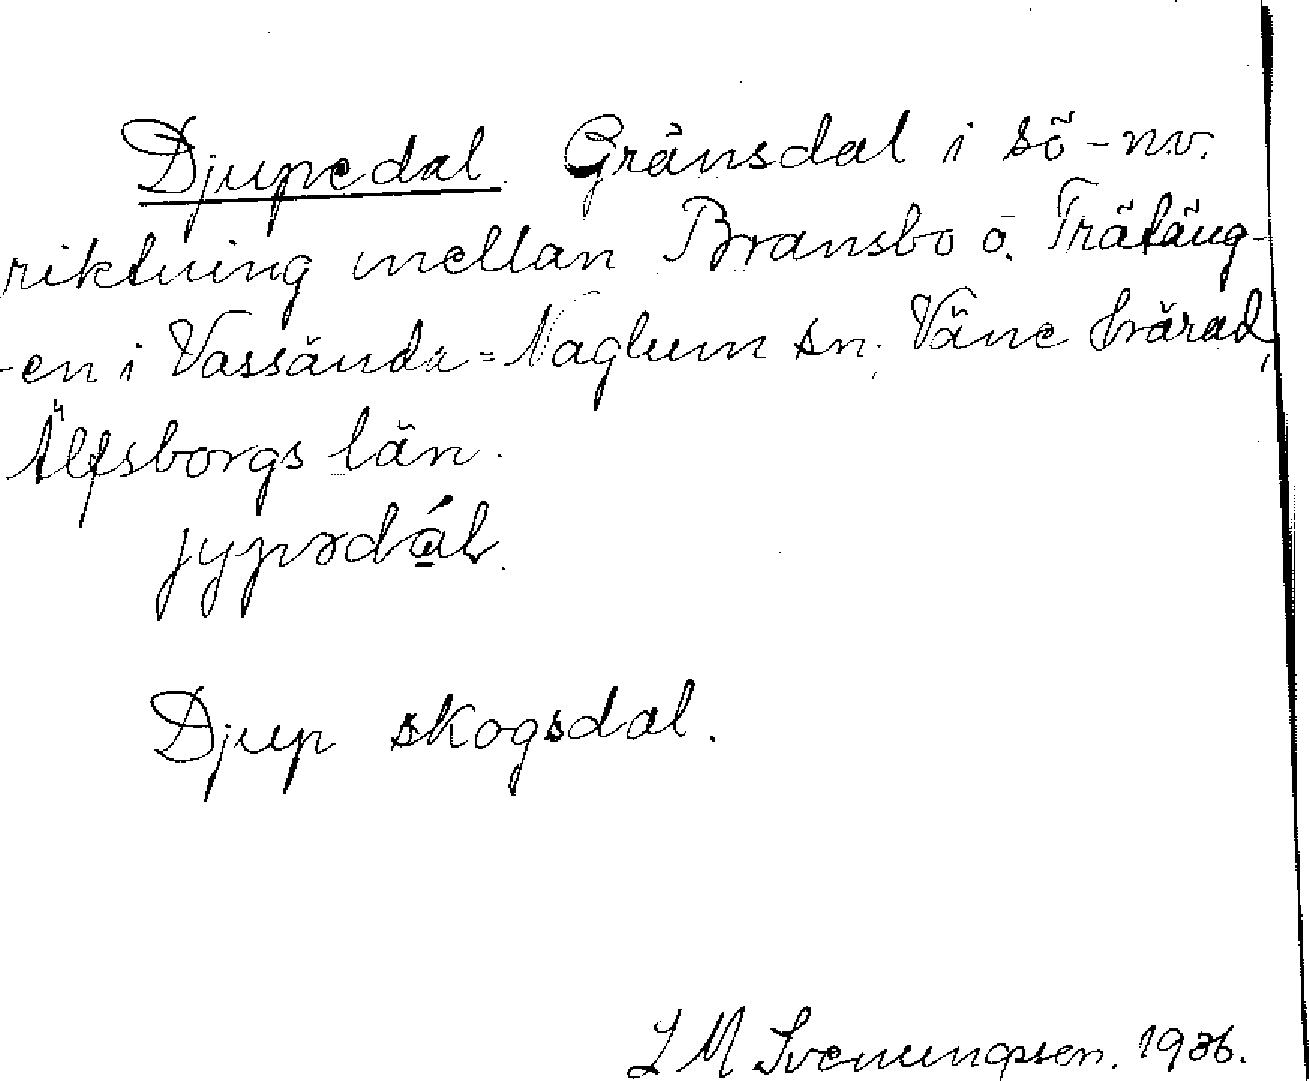 Djupedal. Gränsdal i sö-nv.
riktning mellan Bransbo o. Trätäng-
-en i Vassända=Naglum sn. Väne härad,
Älfsborgs län.
jypədál.
Djup skogsdal.
L M Svenungsson. 1936.